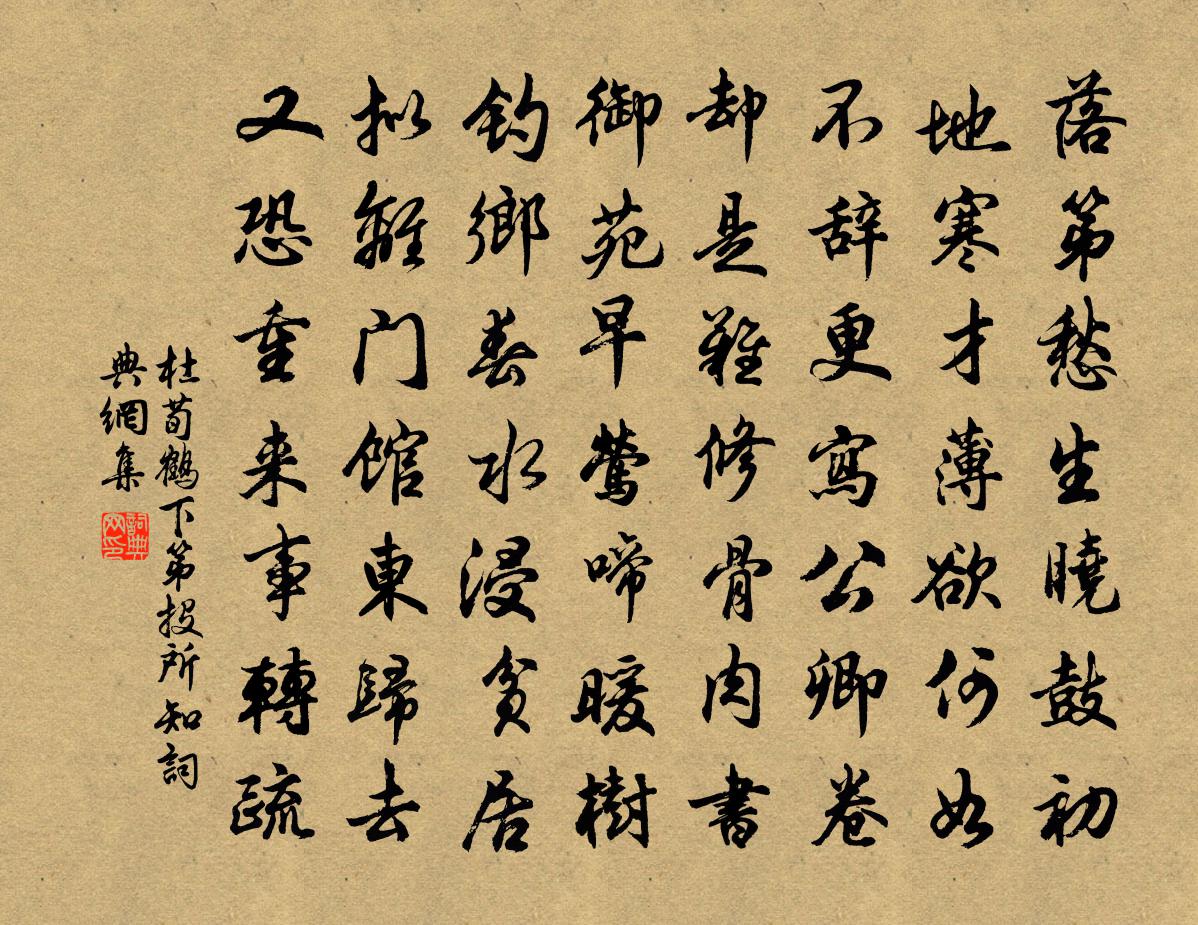 落第愁生曉鼓初
地寒才薄欲何如
不辞更寫公卿卷
却是難修骨肉書
御苑早鶯啼暖樹
釣鄉春水浸貧居
拟離门馆東歸去
又恐重来事轉疏
杜荀鶴下第投所知詞
典網集
詞典
网印